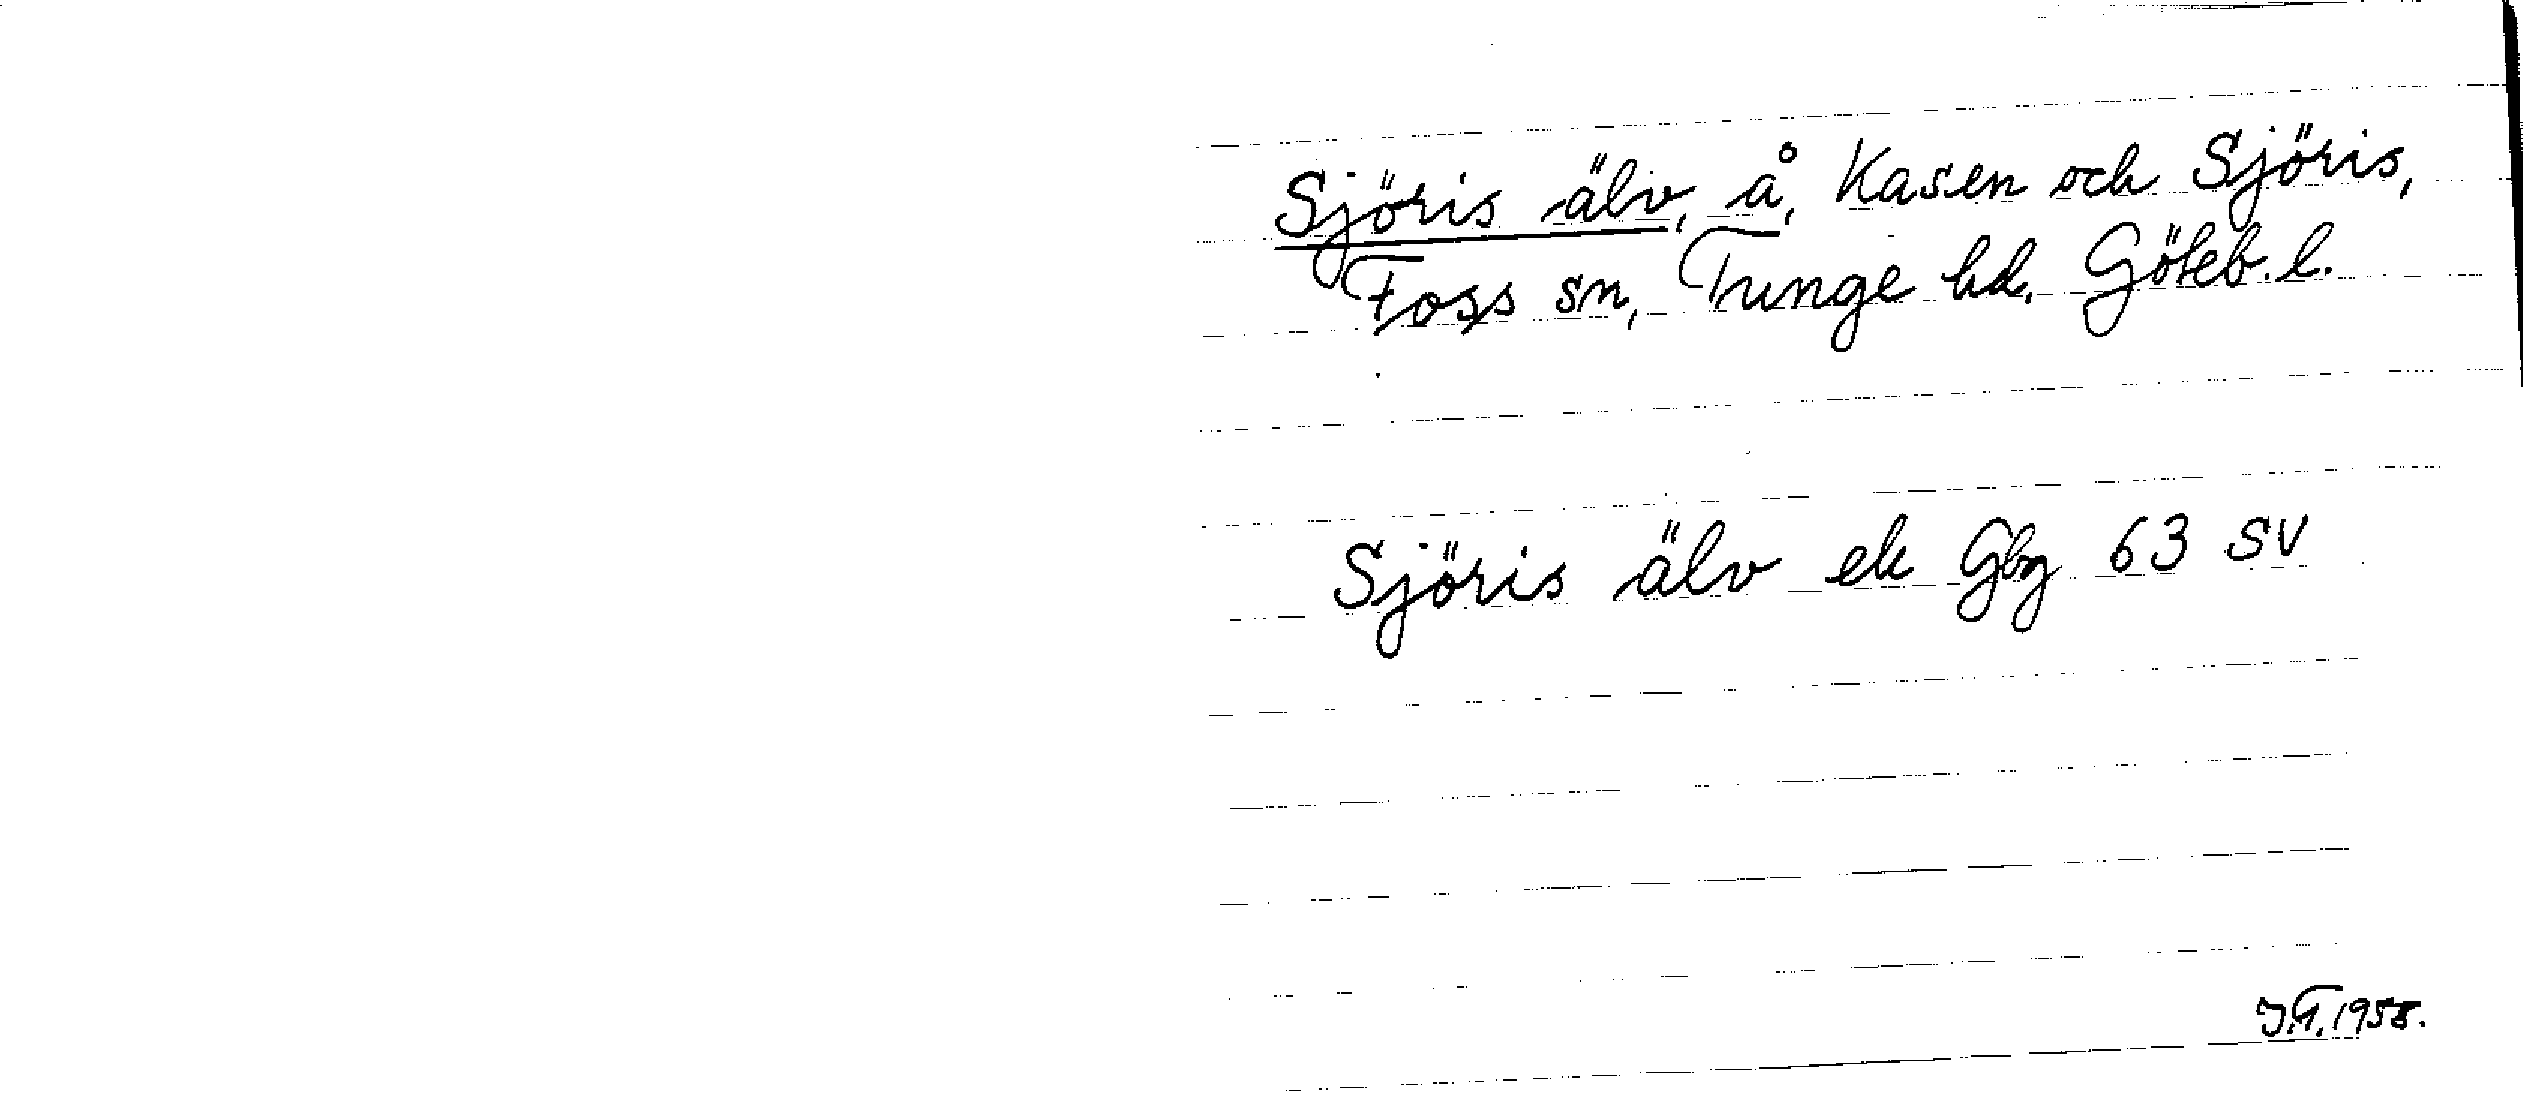 Sjöris älv, å, Kasen och Sjöris,
Foss sn, Tunge hd. Göteb. l.
Sjöris älv ek Gbg 63 SV
1958.